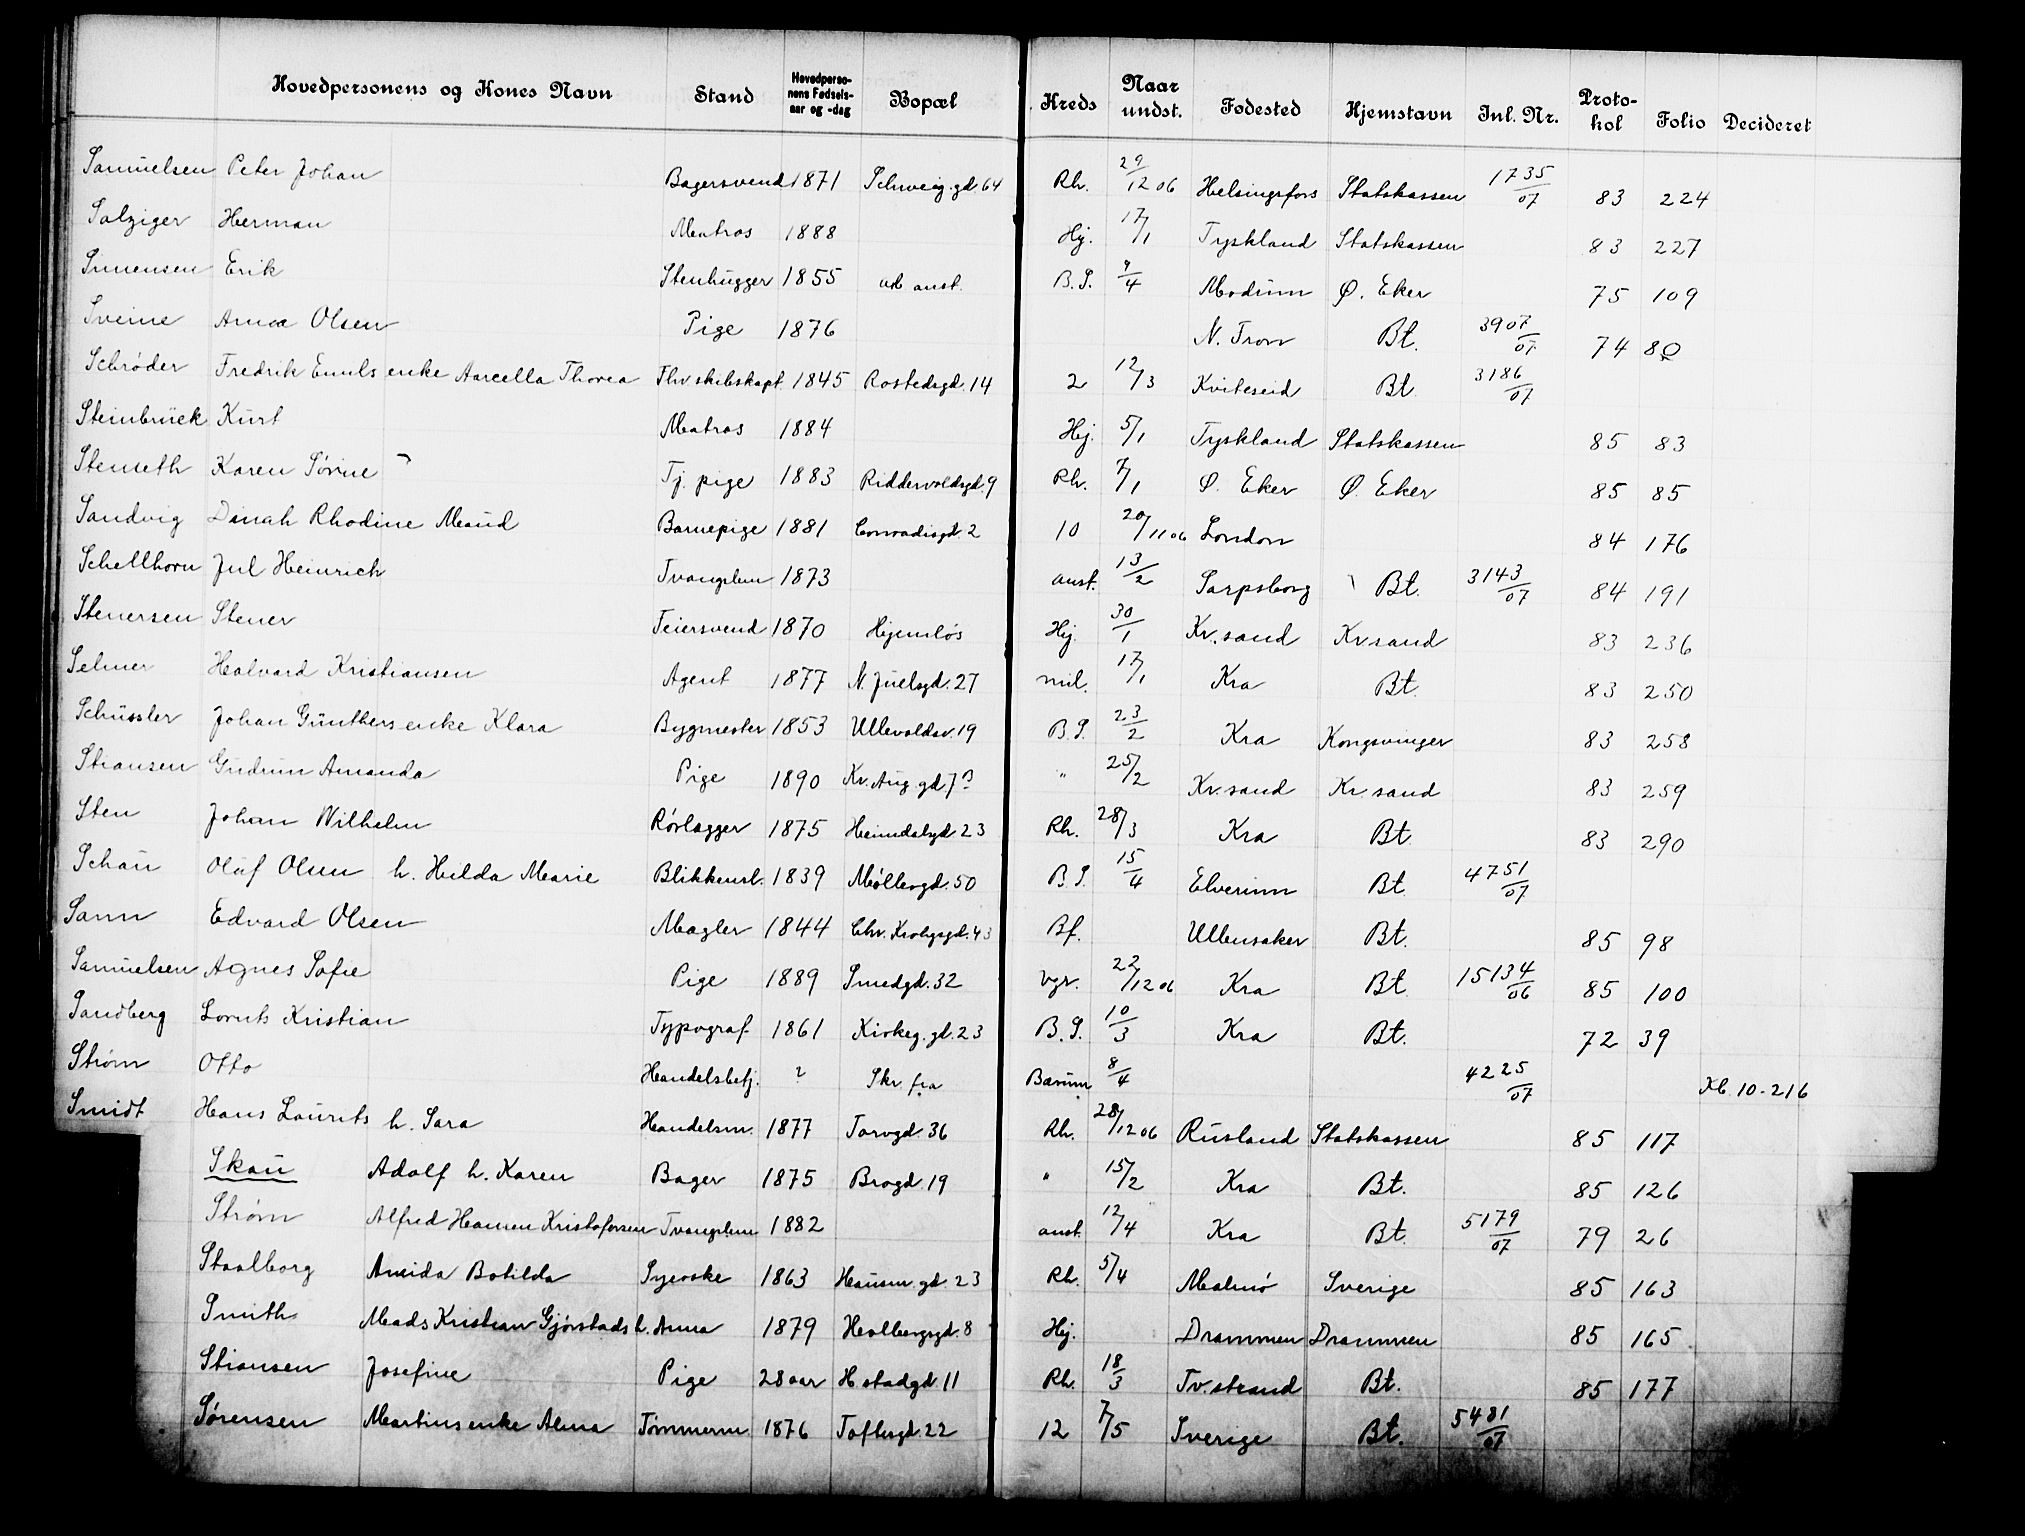 Hovedpersonens og Kones Navn | Stand | Hovedpersonens Fødsels-aar og -dag | Bopæl | Kreds | Naar undst. | Fødested | Hjemstavn | Inl. Nr. | Protokol | Folio | Decideret
Samuelsen Peter Johan Bagersvend 1871 Schweig.gd 64 Rh. 29/12 06 Helsingsfors Statskassen 1735/07 83 224
Salziger Herman Matros 1888 Hj. 17/1 Tyskland Statskassen 83 227
Simensen Erik Stenhugger 1855 ub anst. B.S. 9/4 Modum Ø. Eker 75 109
Sveine Anna Olsen Pige 1876 N. Tron Bt. 3907/07 74 80
Schrøder Fredrik Emils enke Marcella Thorea Fhv skibskapt. 1845 Rostedsgd. 14 2 12/3 Kviteseid Bt. 3186/07
Steinbrück Kurt Matros 1884 Hj. 5/1 Tyskland Statskassen 85 83
Stenseth Karen Sørine Tj. pige 1883 Riddervoldsgd. 9 Rh. 7/1 Ø. Eker Ø. Eker 85 85
Sandvig Dinah Rhodine Maud Barnepige 1881 Conradisgd. 2 10 20/11 06 London 84 176
Schellhorn Jul Heinrich Tvangslem 1873 anst. 13/2 Sarpsborg Bt. 3143/07 84 191
Stenersen Stener Feiersvend 1870 Hjemløs Hj. 30/1 Kr.sand Kr.sand 83 236
Selmer Halvard Kristiansen Agent 1877 N. Juelsgd. 27 mil. 17/1 Kra Bt. 83 250
Schüssler Johan Günthers enke Klara Bygmester 1853 Ullevoldsv. 19 B.S. 23/2 Kra Kongsvinger 83 258
Stiansen Gudrun Amanda Pige 1890 Kr. Aug gd 7B " 25/2 Kr.sand Kr.sand 83 259
Sten Johan Wilhelm Rørlægger 1875 Heimdalsgd. 23 Rh. 28/3 Kra Bt. 83 290
Schau Oluf Olsen h. Hilda Marie Blikkensl. 1839 Møllergd. 50 B.S. 15/4 Elverum Bt 4751/07
Sann Edvard Olsen Mægler 1844 Chr. Krohgsgd. 43 Bf. Ullensaker Bt. 85 98
Samuelsen Agnes Sofie Pige 1889 Smedgd. 32 vgr. 22/12 06 Kra Bt. 15134/06 85 100
Sandberg Lornts Kristian Typograf 1861 Kirkeg.gd. 23 B.S. 10/3 Kra Bt. 72 39
Strøm Otto Handelsbetj. ? Skr. fra Bærum 8/4 4225/07 Kb. 10-216
Smidt Hans Laurits h. Sara Handelsm. 1877 Torvgd. 36 Rh. 28/12 06 Rusland Statskassen 85 117
Skau Adolf h. Karen Bager 1875 Brogd. 19 " 15/2 Kra Bt. 85 126
Strøm Alfred Hansen Kristofersen Tvangslem 1882 anst. 12/4 Kra Bt. 5179/07 79 26
Staalborg Botilda Syerske 1863 Hausm.gd. 23 Rh. 5/4 Malmö Sverige 85 163
Smith Mads Kristian Gjørstads h. Anna 1879 Holbergsgd. 8 Hj. Drammen Drammen 85 165
Stiansen Josefine Pige 28 aar H.stadgd. 11 Rh. 18/3 Tv.strand Bt. 85 177
Sørensen Martins enke Alma Tømmerm. 1876 Toftesgd. 22 12 7/5 Sverige Bt. 5481/07